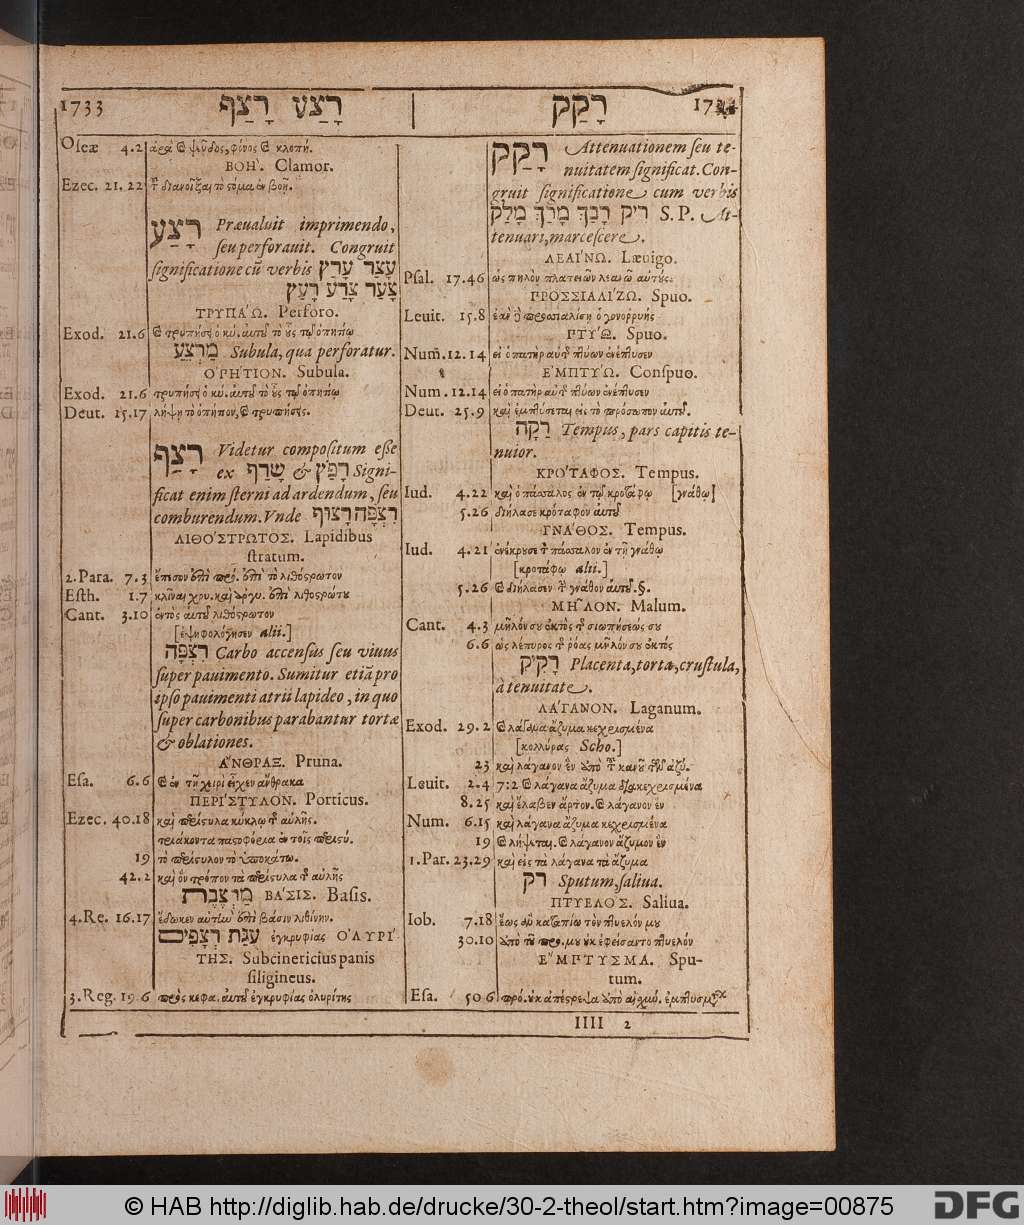 1733 רָצַע רָצַף
Oſeæ 4.2 ἀρὰ καὶ ψεῦδος, φόνος καὶ κλοπή.
ΒΟΗ'. Clamor.
Ezec. 21.22 τῦ διανοῖξαι τὸ στόμα ἐν βοῇ.
רָצַע Præualuit imprimendo,
ſeu perforauit. Congruit
ſignificatione cū verbis עָצַר עָרַץ
צָעַר צָרַע רָעַץ
ΤΡΥΠΑ'Ω. Perforo.
Exod. 21.6 καὶ τρυπήσει ὁ κύ. αὐτοῦ τὸ οὖς τῷ ὀπητίῳ
מַרְצֵעַ Subula, qua perforatur.
Ο'ΡΗ'ΤΙΟΝ. Subula.
Exod. 21.6 τρυπήσει ὁ κύ. αὐτοῦ τὸ οὖς τῷ ὀπητίῳ
Deut. 15.17 λήψῃ τὸ ὀπήτιον, καὶ τρυπήσεις.
רָצַף Videtur compoſitum eſſe
ex שָׂרַף & רָפַץ Signi-
ficat enim ſterni ad ardendum, ſeu
comburendum. Vnde רִצְפָּה רָצוּף
ΛΙΘΟ'ΣΤΡΩΤΟΣ. Lapidibus
ſtratum.
2.Para. 7.3 ἔπεσον ἐπὶ πρό. ἐπὶ τὸ λιθόστρωτον
Eſth. 1.7 κλῖναι χρυ. καὶ ἀργυ. ἐπὶ λιθοστρώτου
Cant. 3.10 ἐντὸς αὐτοῦ λιθόστρωτον
[ἐψηφολόγησεν alii.]
רִצְפָּה Carbo accenſus ſeu viuus
ſuper pauimento. Sumitur etiā pro
ipſo pauimenti atrii lapideo, in quo
ſuper carbonibus parabantur tortæ
& oblationes.
Α῎ΝΘΡΑΞ. Pruna.
Eſa. 6.6 καὶ ἐν τῇ χειρὶ εἶχεν ἄνθρακα
ΠΕΡΙ'ΣΤΥΛΟΝ. Porticus.
Ezec. 40.18 καὶ περίστυλα κύκλῳ τῆς αὐλῆς.
τριάκοντα παστοφόρια ἐν τοῖς περιστύ.
19 τὸ περίστυλον τὸ ὑποκάτω.
42.2 καὶ ὃν τρόπον τὰ περίστυλα τῆς αὐλῆς
ΒΑ'ΣΙΣ. Baſis.
4.Re. 16.17 ἔδωκεν αὐτὴν ἐπὶ βάσιν λιθίνην.
עֻגַת רְצָפִים ἐγκρυφίας Ο'ΛΥΡΙ'
ΤΗΣ. Subcinericius panis
ſiligineus.
3.Reg. 19.6 πρὸς κεφα. αὐτοῦ ἐγκρυφίας ὀλυρίτης
רָקַק
רָקַק Attenuationem ſeu te-
nuitatem ſignificat. Con-
gruit ſignificatione cum verbis
S.P. At-
tenuari, marceſcere.
ΛΕΑΙ'ΝΩ. Læuigo.
Pſal. 17.46 ὡς πηλὸν πλατειῶν λεανῶ αὐτούς.
ΠΡΟΣΣΙΑΛΙ'ΖΩ. Spuo.
Leuit. 15.8 ἐὰν δὲ προσσιαλίσῃ ὁ γονορρυής
ΠΤΥ'Ω. Spuo.
Num̄. 12.14 εἰ ὁ πατὴρ αὐτῆς πτύων ἐνέπτυσεν
Ε'ΜΠΤΥ'Ω. Conſpuo.
Num. 12.14 εἰ ὁ πατὴρ αὐτῆς πτύων ἐνέπτυσεν
Deut. 25.9 καὶ ἐμπτύσεται εἰς τὸ πρόσωπον αὐτοῦ.
רַקָּה Tempus, pars capitis te-
nuior.
ΚΡΟ'ΤΑΦΟΣ. Tempus.
Iud. 4.22 καὶ ὁ πάσσαλος ἐν τῷ κροτάφῳ [γνάθῳ]
5.26 διήλασε κρόταφον αὐτοῦ
ΓΝΑ'ΘΟΣ. Tempus.
Iud. 4.21 ἐνέκρουσε τὸν πάσσαλον ἐν τῇ γνάθῳ
[κροτάφῳ alii.]
5.26 καὶ διήλασεν τὴν γνάθον αὐτοῦ. §.
ΜΗ῀ΛΟΝ. Malum.
Cant. 4.3 μῆλόν σου ἐκτὸς τῆς σιωπήσεώς σου
6.6 ὡς λέπυρος τῆς ῥόας μῆλόν σου ἐκτός
רָקִיק Placenta, torta, cruſtula,
à tenuitate.
ΛΑ'ΓΑΝΟΝ. Laganum.
Exod. 29.2 καὶ λάγανα ἄζυμα κεχρισμένα
[κολλύρας Scho.]
23 καὶ λάγανον ἓν ἀπὸ τοῦ κανοῦ τῶν ἀζύ.
Leuit. 2.4 7:2 καὶ λάγανα ἄζυμα διακεχρισμένα
8.25 καὶ ἔλαβεν ἄρτον. καὶ λάγανον ἓν
Num. 6.15 καὶ λάγανα ἄζυμα κεχρισμένα
19 καὶ λήψεται. καὶ λάγανον ἄζυμον ἓν
1.Par. 23.29 καὶ εἰς τὰ λάγανα τὰ ἄζυμα
רֹק Sputum, ſaliua.
ΠΤΥΕΛΟ'Σ. Saliua.
Iob. 7.18 ἕως ἂν καταπίω τὸν πτυελόν μου
30.10 ἀπὸ τοῦ προ. μου οὐκ ἐφείσαντο πτυελόν
Ε῎ΜΠΤΥΣΜΑ. Spu-
tum.
Eſa. 50 6 πρό. οὐκ ἀπέστρεψα ἀπὸ αἰσχύ. ἐμπτυσμάτων
IIII 2
© HAB http://diglib.hab.de/drucke/30-2-theol/start.htm?image=00875
DFG